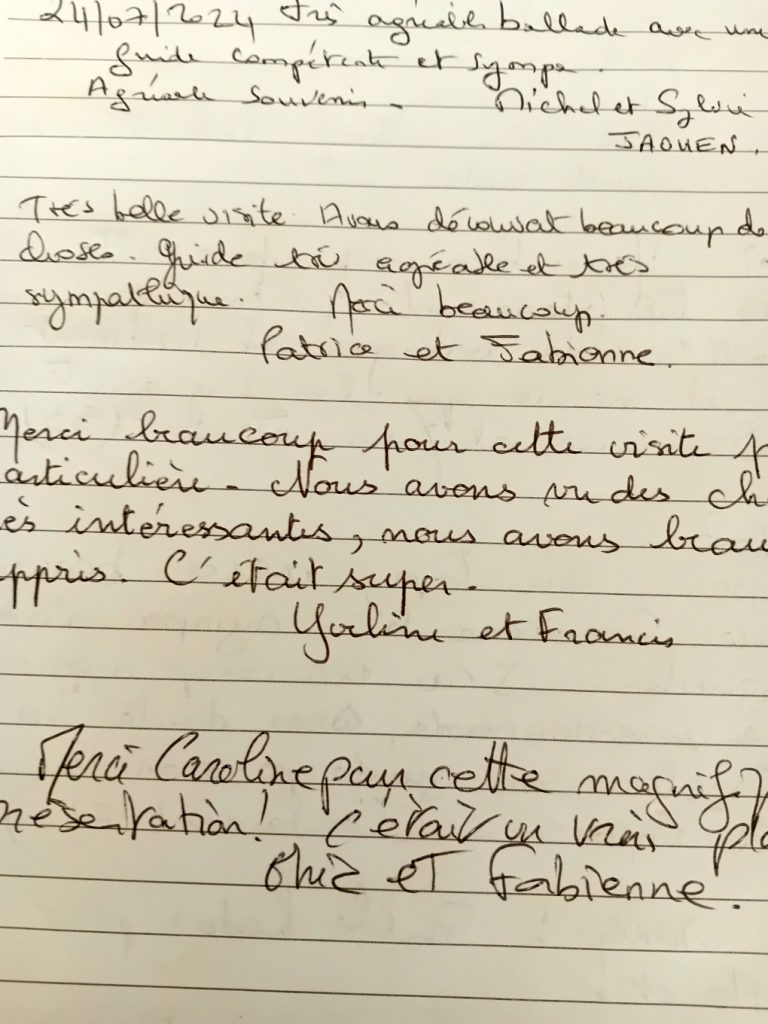 24/07/2024 Très agréable ballade avec une
guide compétente et sympa.
Agréable souvenir - Michel et Sylvie
JAOUEN.
Très belle visite. Avons découvert beaucoup de
choses. Guide très agréable et très
sympathique. Merci beaucoup.
Patrice et Fabienne.
Merci beaucoup pour cette visite p
articulière - Nous avons vu des ch
ès intéressantes, nous avons beau
ppris. C'était super.
et Francis
Merci Caroline pour cette magnif
résentation! C'était un vrai pla
et Fabienne.